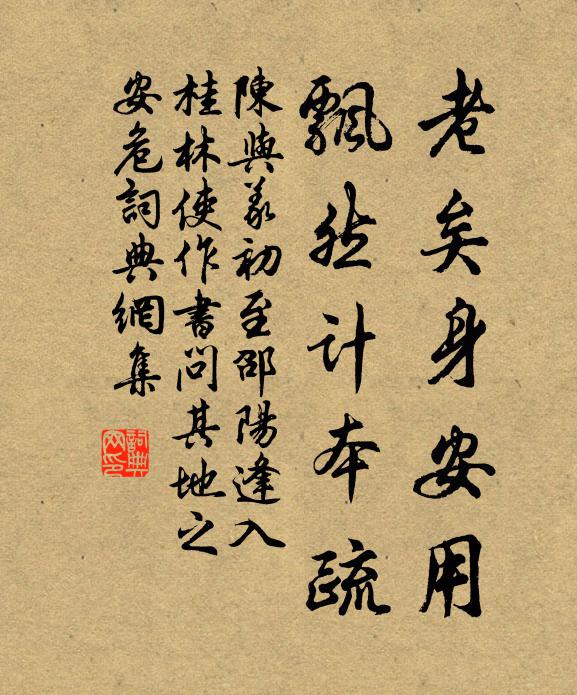 老矣身安用
飄然計本疏
陳與義初至邵陽逢入
桂林使作書問其地之
安危詞典網集
詞典
网印